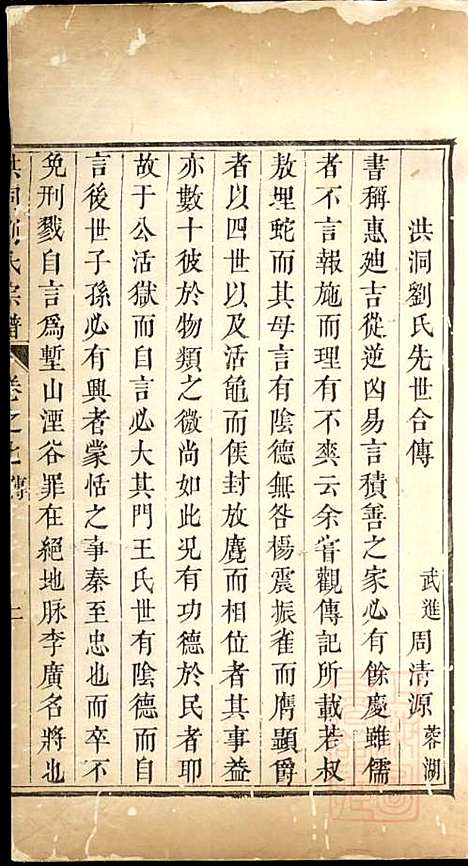 洪洞劉氏先世合傳 武進周清源蓉湖
書稱惠廸吉從逆凶易言積善之家必有餘慶雖儒
者不言報施而理有不爽云余嘗觀傳記所載若叔
敖埋蛇而其母言有陰德無咎楊震振雀而膺顯爵
者以四世以及活龜而侯封放麑而相位者其事益
亦數十彼於物類之微尚如此况有功德於民者耶
故于公活獄而自言必大其門王氏世有陰德而自
言後世子孫必有興者蒙恬之事秦至忠也而卒不
免刑戮自言為塹山湮谷罪在絕地脉李廣名將也
洪洞劉氏宗譜 卷之七 傳